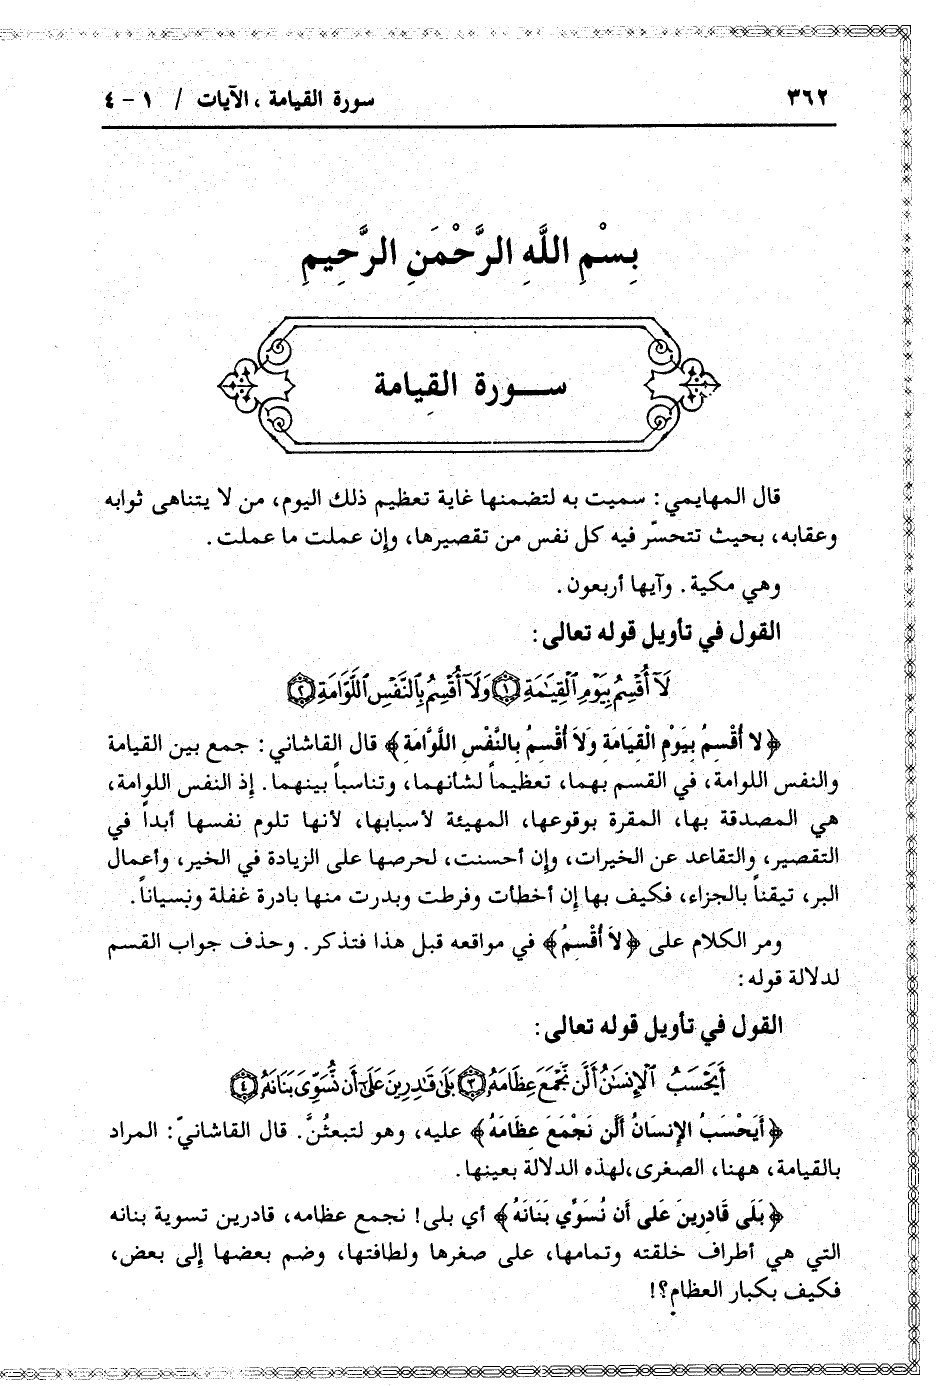 ٣٦٢ سورة القيامة ، الآيات / ١ - ٤
بِسْمِ اللَّهِ الرَّحْمَنِ الرَّحِيمِ
ســورة القِيامة
قال المهايمي: سميت به لتضمنها غاية تعظيم ذلك اليوم، من لا يتناهى ثوابه
وعقابه، بحيث تتحسّر فيه كل نفس من تقصيرها، وإن عملت ما عملت.
وهي مكية. وآيها أربعون.
القول في تأويل قوله تعالى:
لَآ أُقْسِمُ بِيَوْمِ ٱلْقِيَٰمَةِ ١ وَلَآ أُقْسِمُ بِٱلنَّفْسِ ٱللَّوَّامَةِ ٢
﴿لا أُقْسِمُ بِيَوْمِ الْقِيَامَةِ وَلاَ أُقْسِمُ بِالنَّفْسِ اللَّوَّامَةِ﴾ قال القاشاني: جمع بين القيامة
والنفس اللوامة، في القسم بهما، تعظيماً لشأنهما، وتناسباً بينهما. إذ النفس اللوامة،
هي المصدقة بها، المقرة بوقوعها، المهيئة لأسبابها، لأنها تلوم نفسها أبداً في
التقصير، والتقاعد عن الخيرات، وإن أحسنت، لحرصها على الزيادة في الخير، وأعمال
البر، تيقناً بالجزاء، فكيف بها إن أخطأت وفرطت وبدرت منها بادرة غفلة ونِسياناً.
ومر الكلام على ﴿لاَ أُقْسِمُ﴾ في مواقعه قبل هذا فتذكر. وحذف جواب القسم
لدلالة قوله:
القول في تأويل قوله تعالى:
أَيَحْسَبُ ٱلْإِنسَٰنُ أَلَّن نَّجْمَعَ عِظَامَهُۥ ٣ بَلَىٰ قَٰدِرِينَ عَلَىٰٓ أَن نُّسَوِّىَ بَنَانَهُۥ ٤
﴿أَيَحْسَبُ الإِنسَانُ أَلَّن نَجْمَعَ عِظَامَهُ﴾ عليه، وهو لتبعثُنَّ. قال القاشانيّ: المراد
بالقيامة، ههنا، الصغرى،لهذه الدلالة بعينها.
﴿بَلَى قَادِرِينَ عَلى أَن نُسَوِّي بَنَانَهُ﴾ أي بلى! نجمع عظامه، قادرين تسوية بنانه
التي هي أطراف خلقته وتمامها، على صغرها ولطافتها، وضم بعضها إلى بعض،
فكيف بكبار العظام؟!